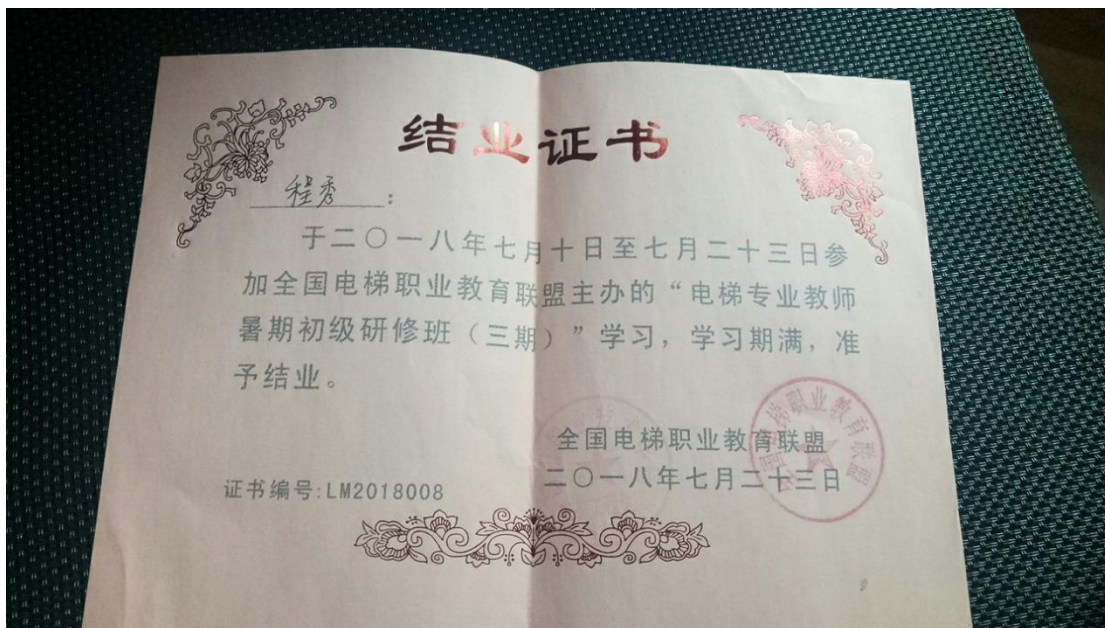 结业证书
程秀：
于二〇一八年七月十日至七月二十三日参
加全国电梯职业教育联盟主办的“电梯专业教师
暑期初级研修班（三期）”学习，学习期满，准
予结业。
全国电梯职业教育联盟
二〇一八年七月二十三日
证书编号:LM2018008
全国电梯职业教育联盟